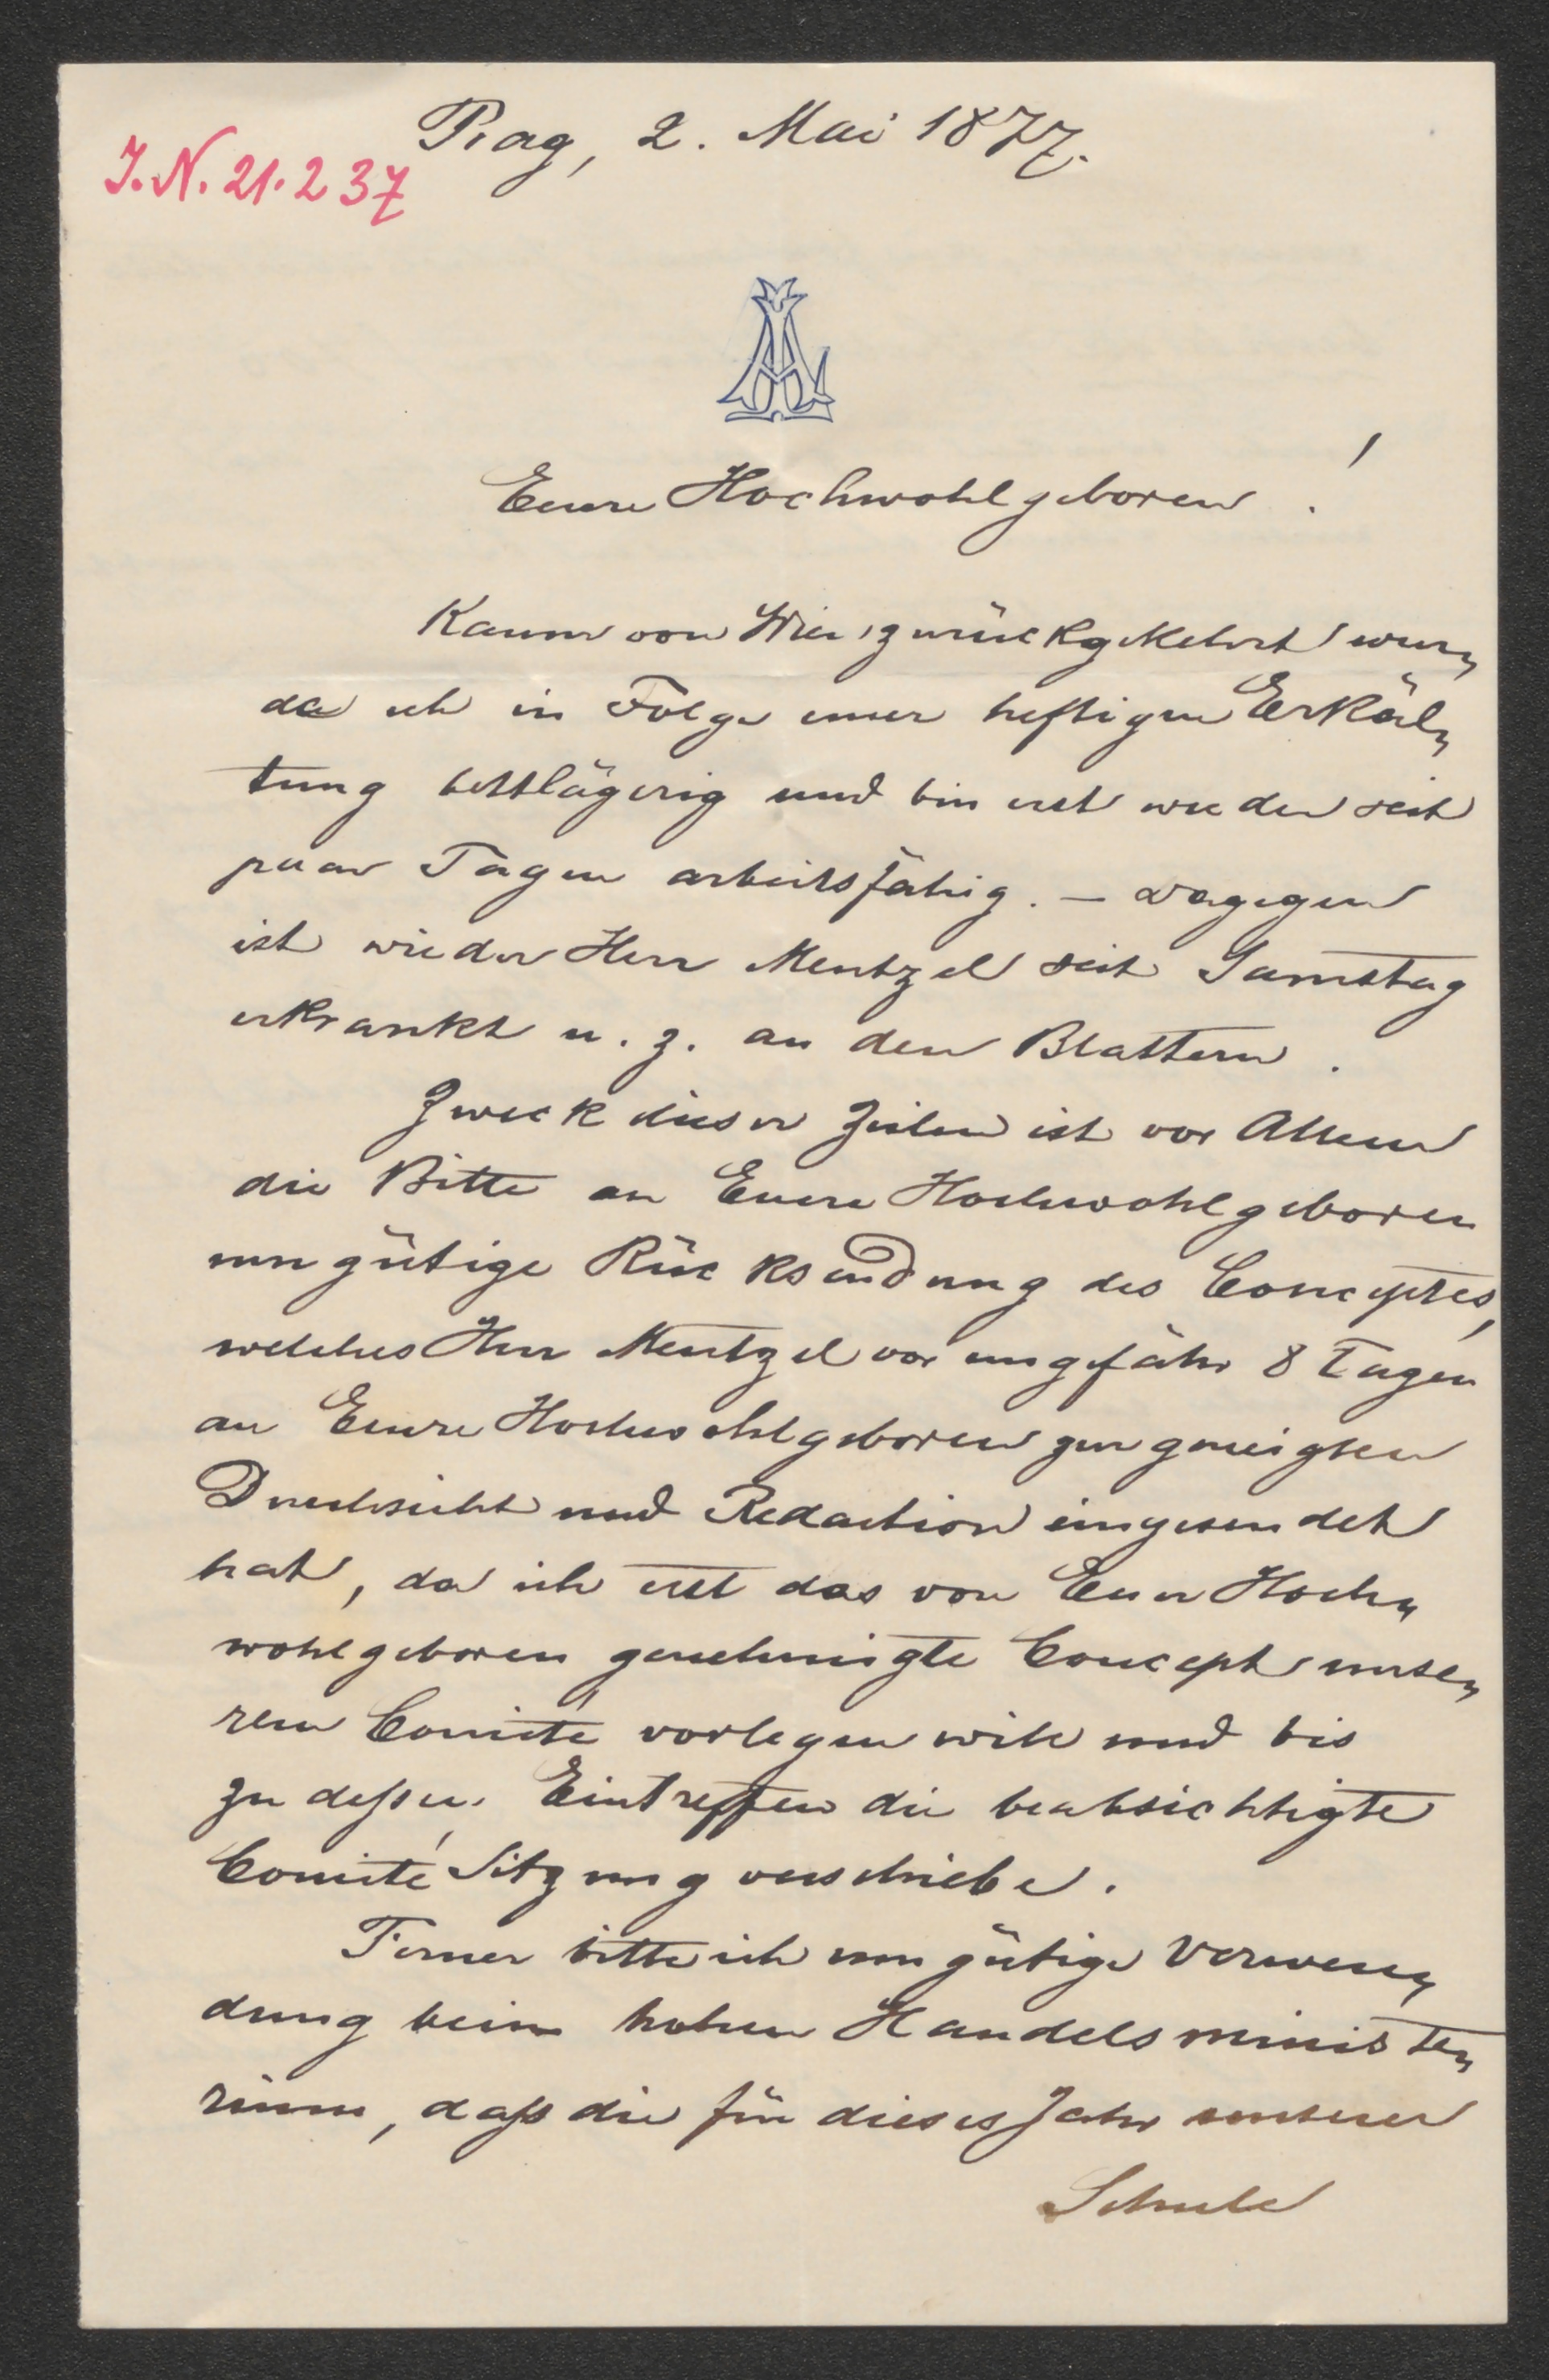 Prag, 2. Mai 1877.
J.N. 21.237
AL
Euere Hochwohlgeboren !
Kaum von Wien zurückgekehrt wur„
de ich in Folge einer heftigen Erkäl„
tung bettlägerig und bin erst wieder seit
paar Tagen arbeitsfähig. — Dagegen
ist wieder Herr Mentzel seit Samstag
erkrankt u. z. an den Blattern.
Zweck dieser Zeilen ist vor Allem
die Bitte an Euere Hochwohlgeboren
um gütige Rücksendung des Conceptes,
welches Herr Mentzel vor ungefähr 8 Tagen
an Euere Hochwohlgeboren zur geneigten
Durchsicht und Redaction eingesendet
hat, da ich erst das von Euer Hoch„
wohlgeboren genehmigte Concept unse„
rem Comité vorlegen will und bis
zu deßen Eintreffen die beabsichtigte
Comité Sitzung verschiebe.
Ferner bitte ich um gütige Verwen„
dung beim hohen Handelsministe„
rium, daß die für dieses Jahr unserer
Schule